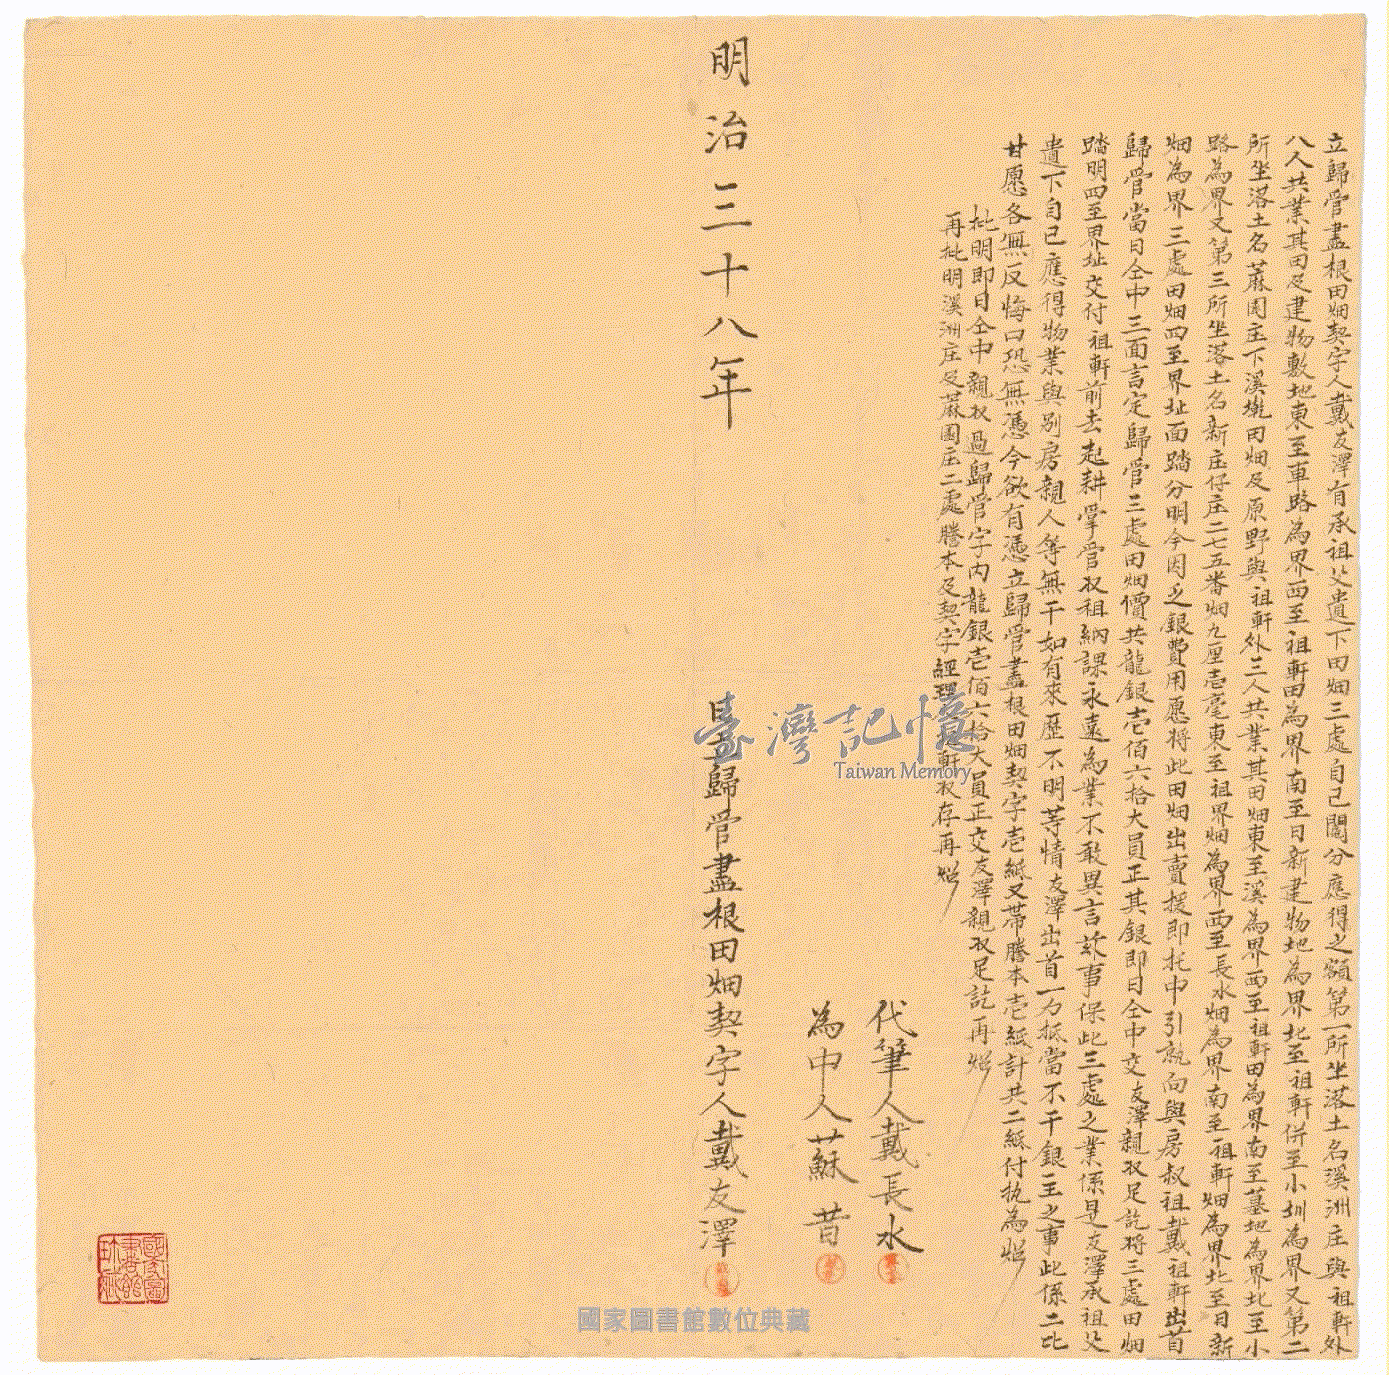 立歸管盡根田畑契字人戴友澤有承祖父遺下田畑三處自己鬮分應得之額第一所坐落土名溪洲庄與祖軒外
八人共業其田及建物敷地東至車路為界西至祖軒田為界南至日新建物地為界北至祖軒併至小圳為界又第二
所坐落土名蔴園庄下溪墘田畑及原野與祖軒外三人共業其田畑東至溪為界西至祖軒田為界南至墓地為界北至小
路為界又第三所坐落土名新庄仔庄二七五番畑九厘壱毫東至祖界畑為界西至長水畑為界南至祖軒畑為界北至日新
畑為界三處田畑四至界址面踏分明今因乏銀費用愿將此田畑出賣援即托中引就向與房叔祖戴祖軒出首
歸管當日仝中三面言定歸管三處田畑價共龍銀壱佰六拾大員正其銀即日仝中交友澤親收足訖將三處田畑
踏明四至界址交付祖軒前去起耕掌管收租納課永遠為業不敢異言玆事保此三處之業係是友澤承祖父
遺下自己應得物業與別房親人等無干如有來歷不明等情友澤出首一力抵當不干銀主之事此係二比
甘愿各無反悔口恐無憑今欲有憑立歸管盡根田畑契字壱紙又帶謄本壱紙計共二紙付执為炤
批明即日仝中親收過歸管字内龍銀壱佰六拾大員正交友澤親收足訖再炤
再批明溪洲庄及蔴園庄二處謄本及契字經理軒收存再炤
代筆人戴長水
為中人蘇昔
明治三十八年
日立歸管盡根田畑契字人戴友澤
臺灣記憶
Taiwan Memory
國家圖書館數位典藏
國家圖書館珍藏